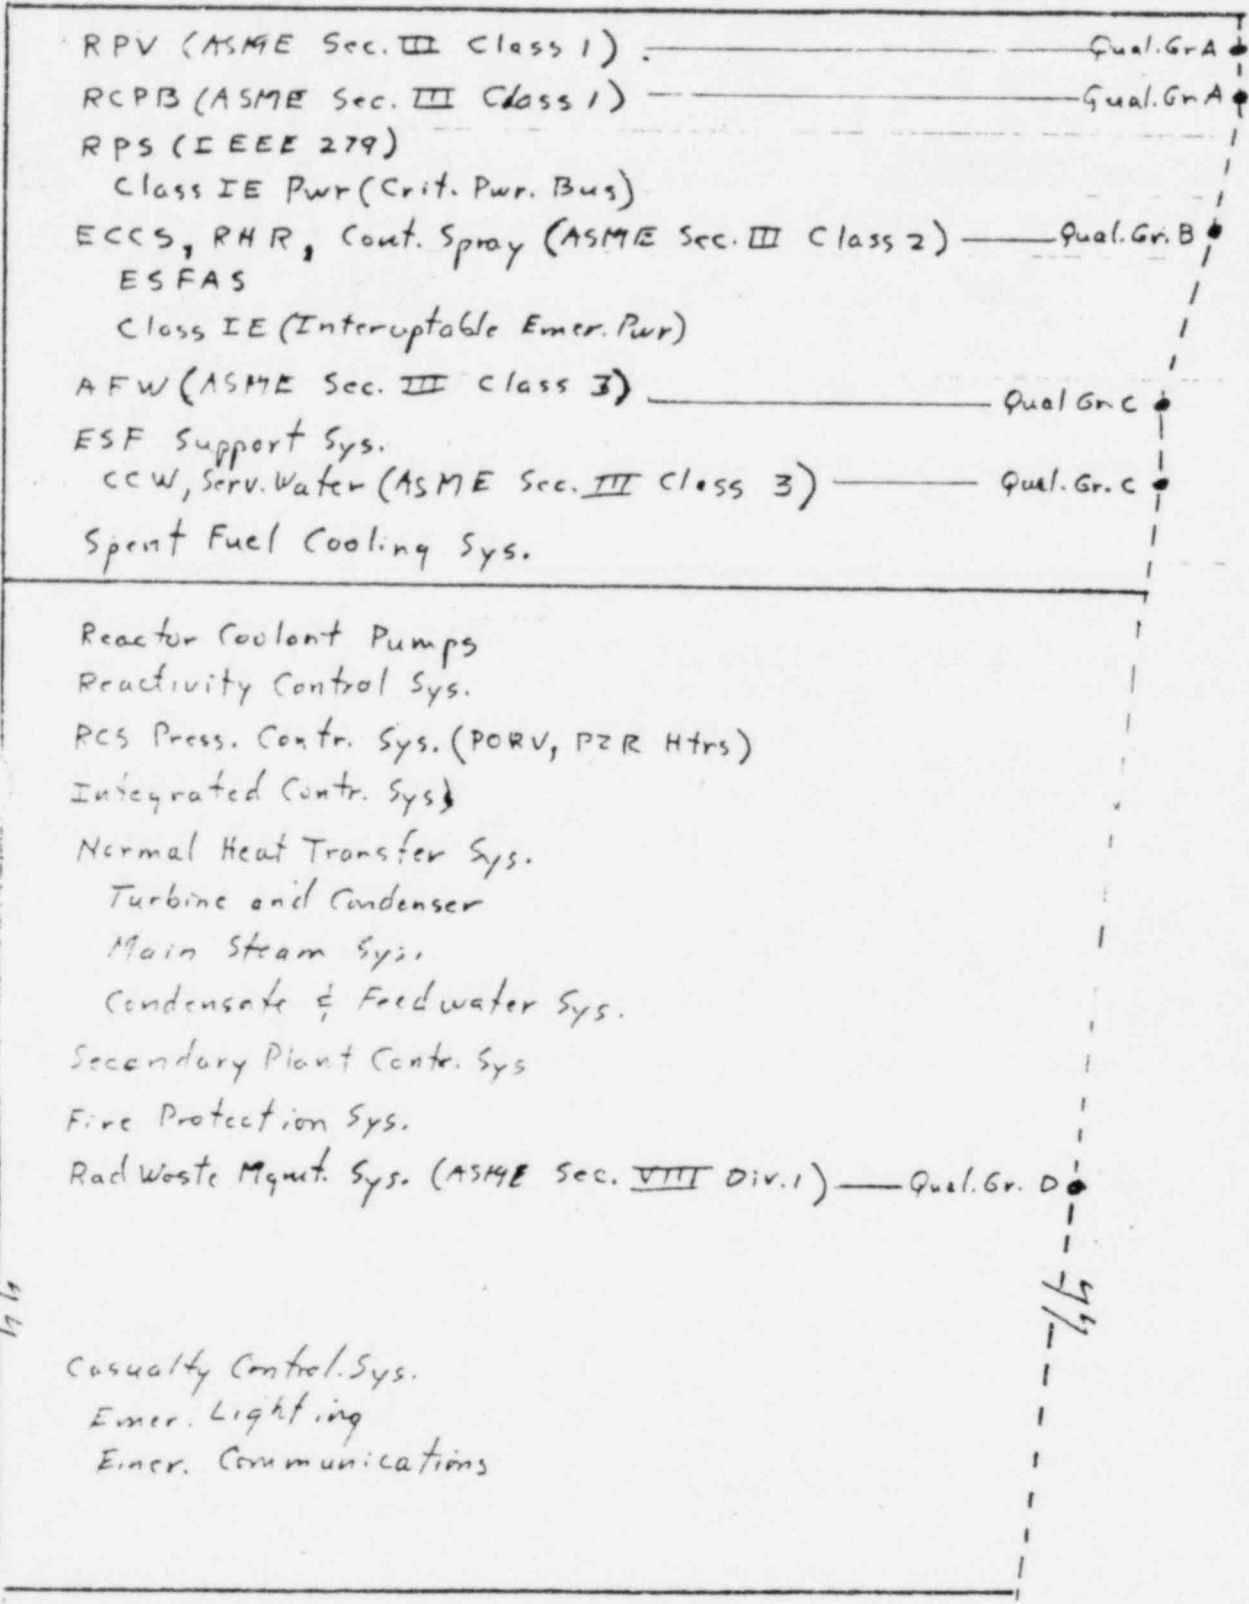 RPV (ASME Sec. III Class 1) Qual.Gr A
RCPB (ASME Sec. III Class 1) Qual.Gr A
RPS (IEEE 279)
Class IE Pwr (Crit. Pwr. Bus)
ECCS, RHR, Cont. Spray (ASME Sec. III Class 2) Qual.Gr. B
ESFAS
Class IE (Interuptable Emer. Pwr)
AFW (ASME Sec. III Class 3) Qual Gr. C
ESF Support Sys.
CCW, Serv. Water (ASME Sec. III Class 3) Qual. Gr. C
Spent Fuel Cooling Sys.
Reactor Coolant Pumps
Reactivity Control Sys.
RCS Press. Contr. Sys. (PORV, PZR Htrs)
Integrated Contr. Sys)
Normal Heat Transfer Sys.
Turbine and Condenser
Main Steam Sys.
Condensate & Feedwater Sys.
Secondary Plant Contr. Sys
Fire Protection Sys.
Rad Waste Mgmt. Sys. (ASME Sec. VIII Div. 1) Qual. Gr. D
Casualty Control. Sys.
Emer. Lighting
Emer. Communications